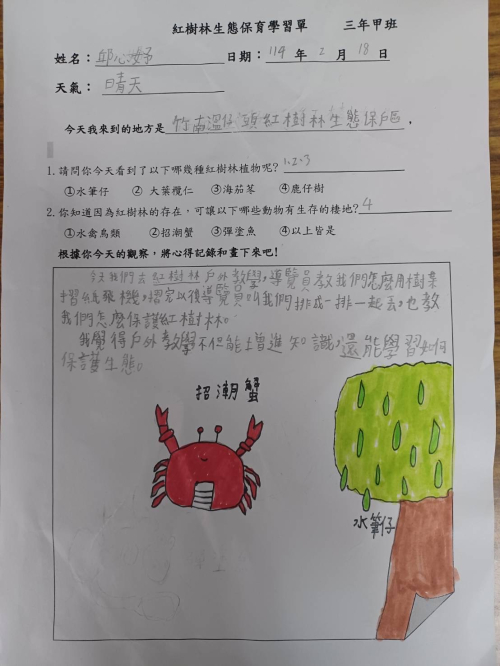 紅樹林生態保育學習單 三年甲班
姓名：邱心妤 日期：114 年 2 月 18 日
天氣：晴天
今天我來到的地方是 竹南溫仔頭紅樹林生態保戶區，
1. 請問你今天看到了以下哪幾種紅樹林植物呢? 1、2、3
①水筆仔 ② 大葉欖仁 ③海茄苳 ④鹿仔樹
2. 你知道因為紅樹林的存在，可讓以下哪些動物有生存的棲地? 4
①水禽鳥類 ②招潮蟹 ③彈塗魚 ④以上皆是
根據你今天的觀察，將心得記錄和畫下來吧!
今天我們去紅樹林戶外教學，導覽員教我們怎麼用樹葉
摺紙飛機，摺完以後導覽員叫我們排成一排一起丟，也教
我們怎麼保護紅樹林。
我覺得戶外教學不但能增進知識，還能學習如何
保護生態。
招潮蟹
水筆仔